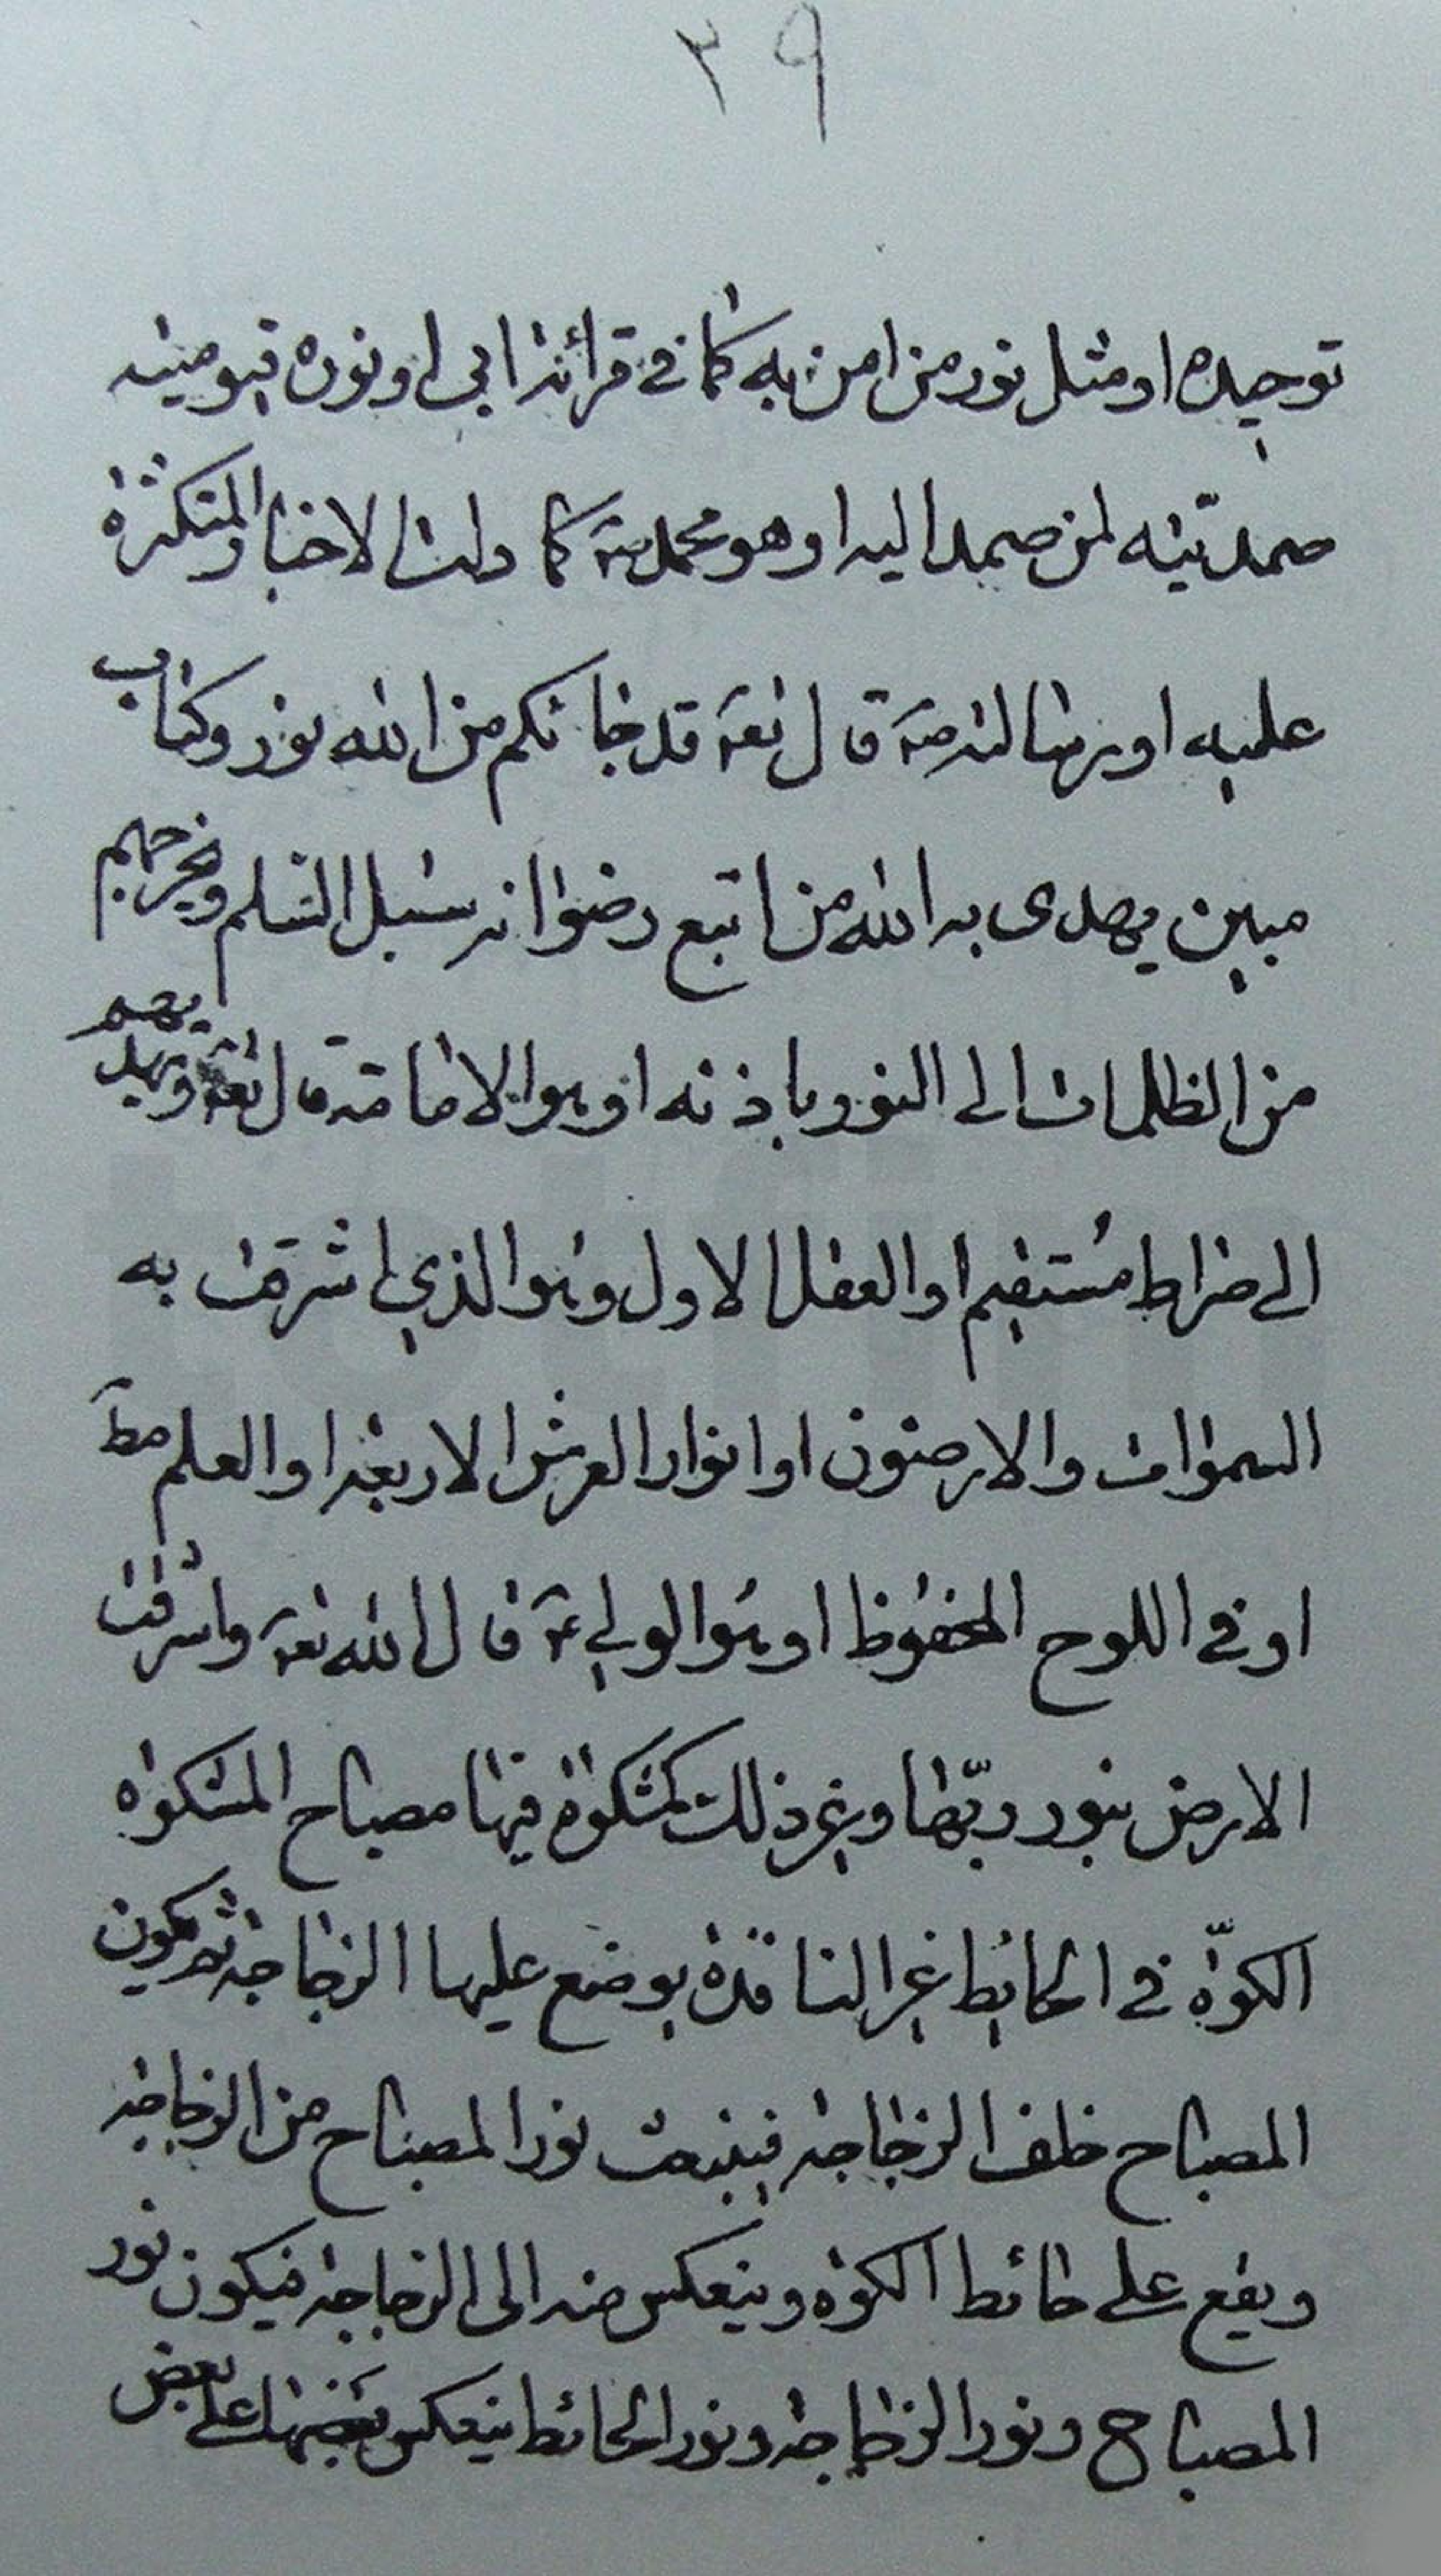 ٣٩
توحيده او مثل نور من امن به كما في قرائة ابي او نوره قيوميته
صمديّته لمن صمد اليه او هو محمد ص كما دلت الاخبار المتكثرة
عليه او رسالته ص قال تع قد جائكم من الله نور وكتاب
مبين يهدى به الله من اتبع رضوانه سبل السّلم ويخرجهم
من الظلمات الى النور باذنه او هو الامامة قال تع ويهديهم
الى صراط مستقيم او العقل الاول وهو الذي اشرقت به
السموات والارضون او انوار العرش الاربعة او العلم مط
او في اللوح المحفوظ او هو الولي ع قال الله تع واشرقت
الارض بنور ربّها وغير ذلك كمشكوة فيها مصباح المشكوة
الكوّة في الحائط غير النافذة يوضع عليها الزجاجة ثم يكون
المصباح خلف الزجاجة فينبعث نور المصباح من الزجاجة
ويقع على حائط الكوة وينعكس منه الى الزجاجة فيكون نور
المصباح ونور الزجاجة ونور الحائط ينعكس بعضها على بعض